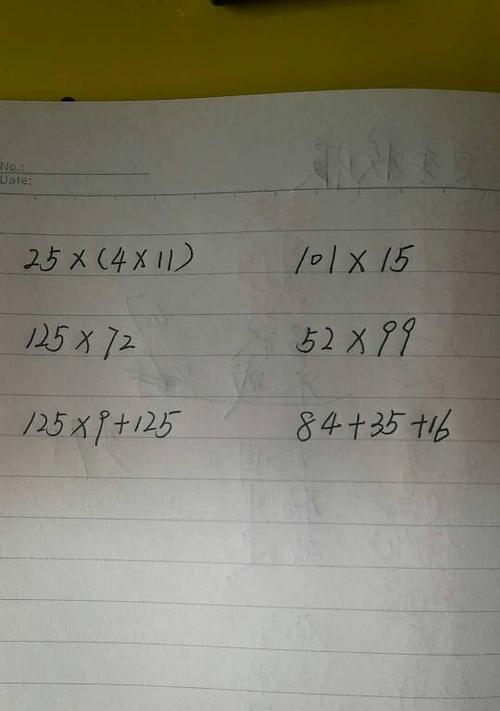 No.:
Date:
25×(4×11) 101×15
125×72 52×99
125×9+125 84+35+16